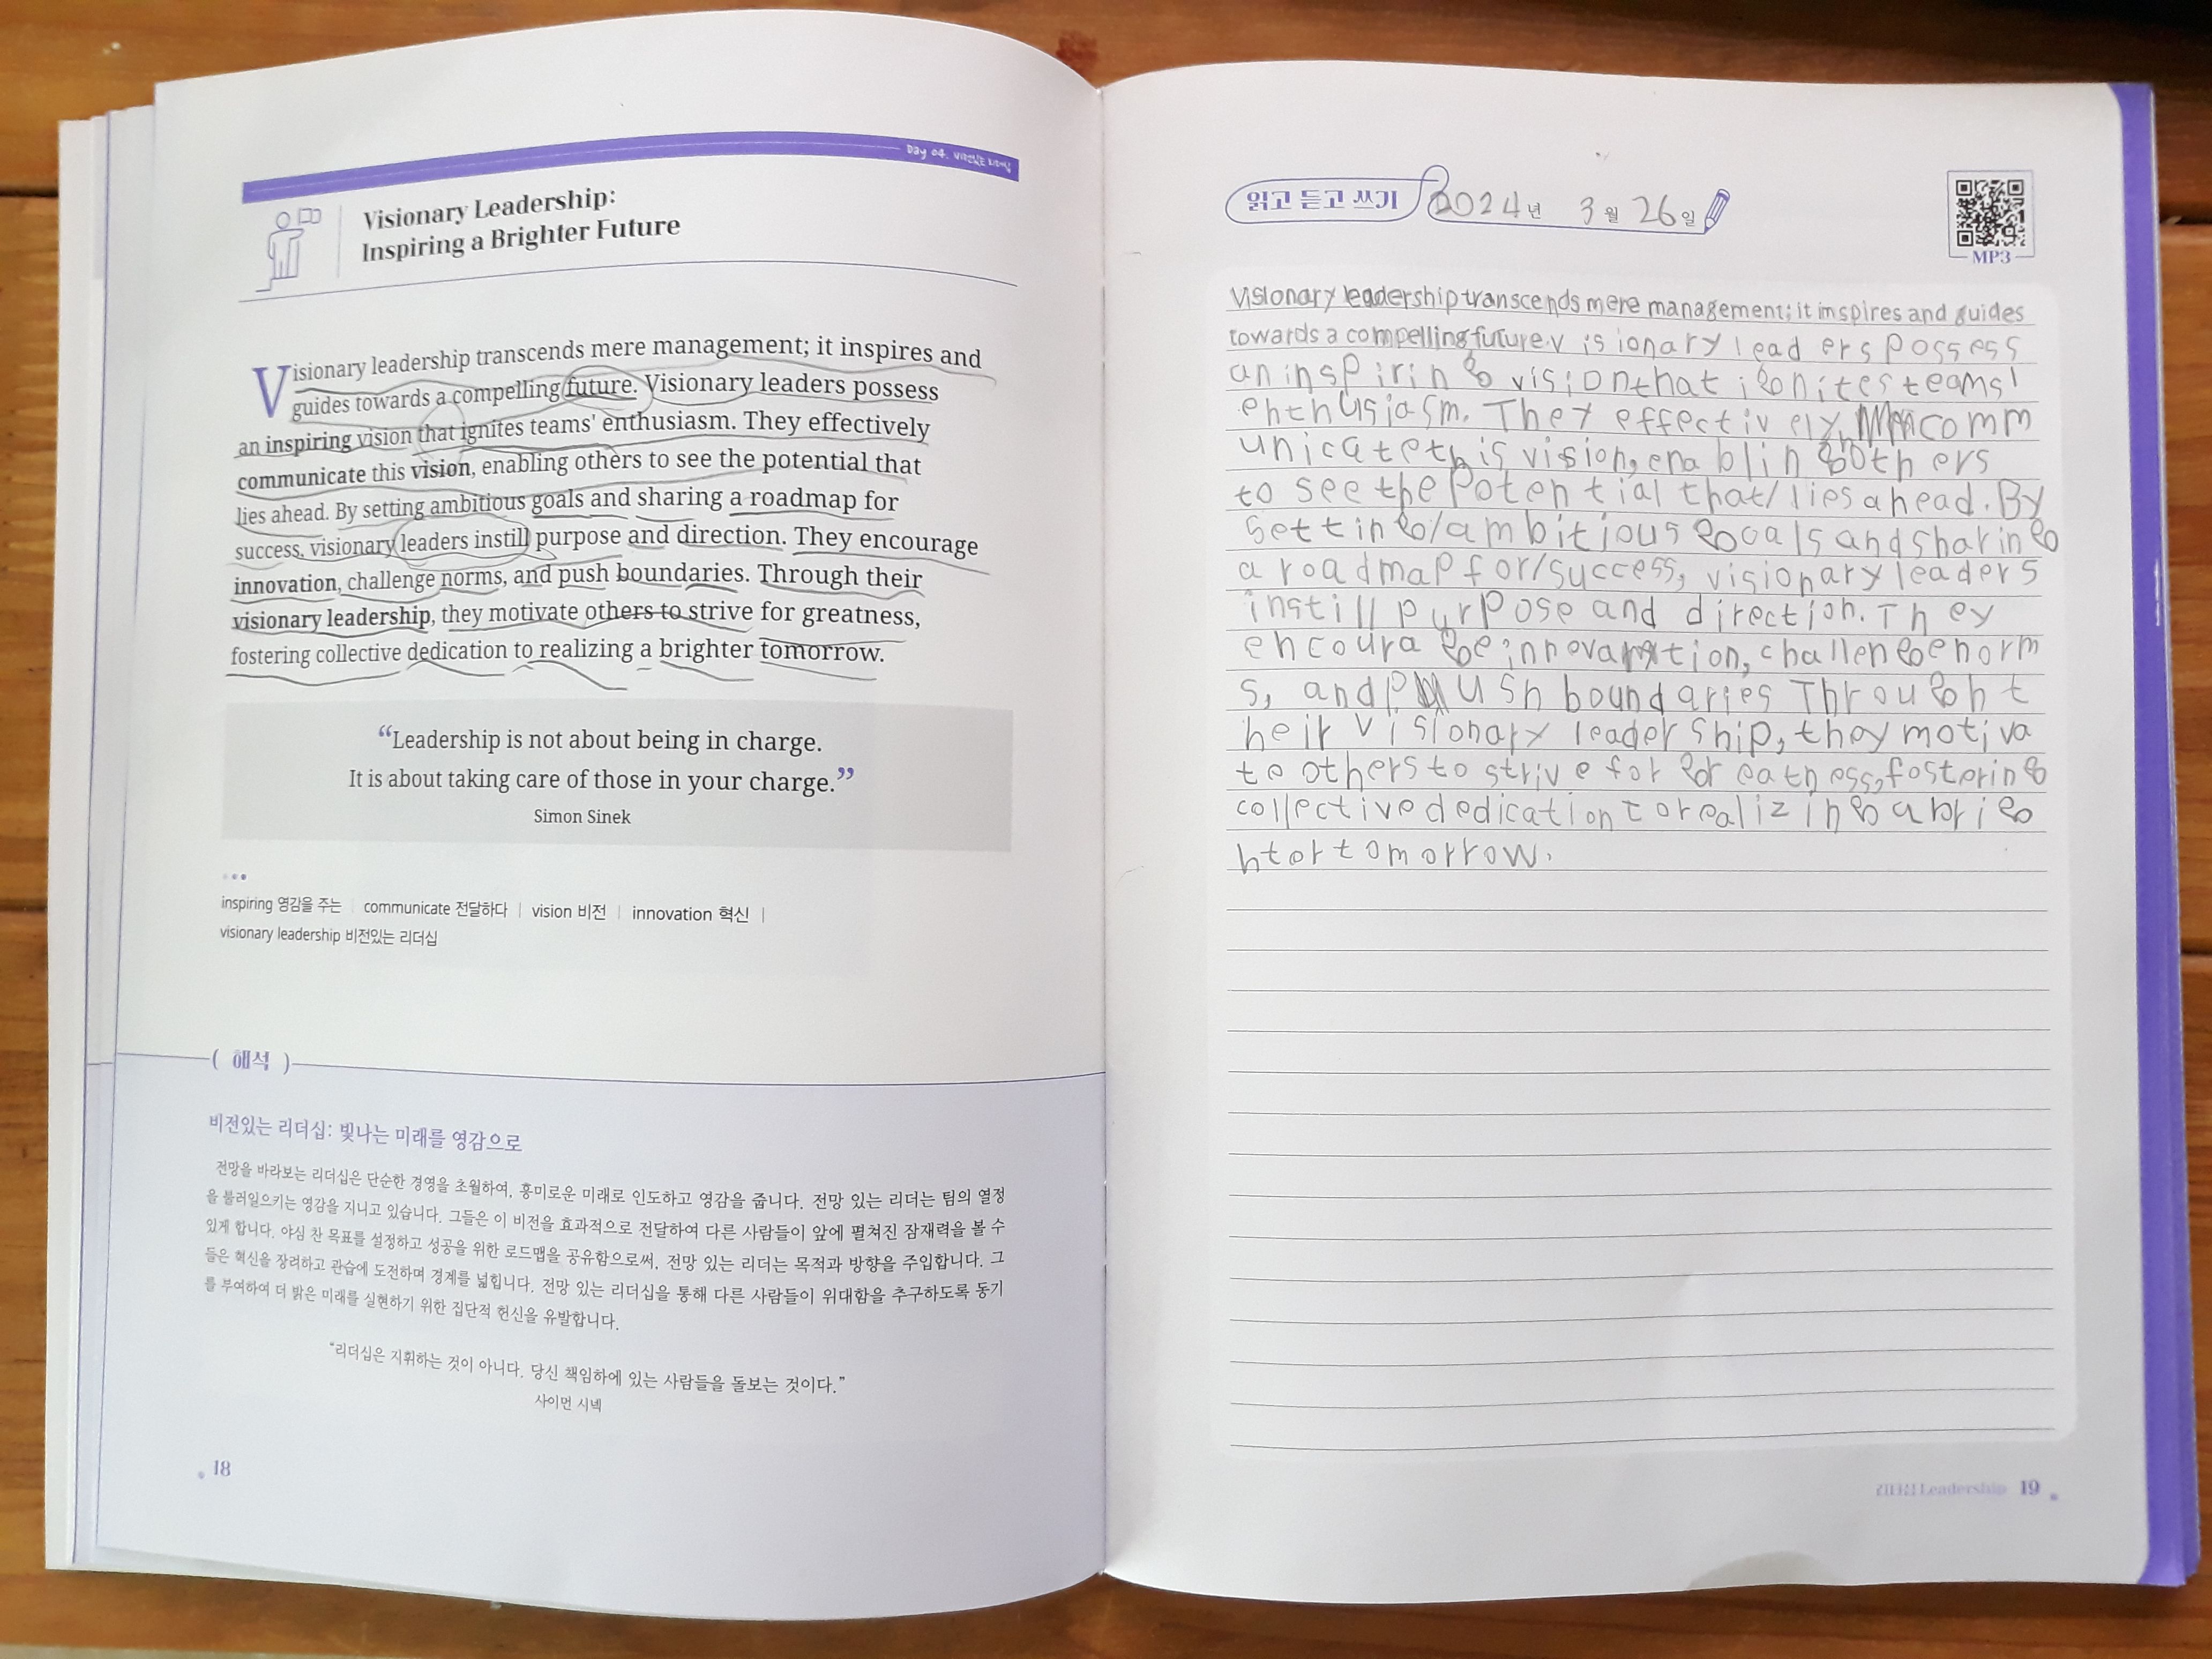 Day 04. 비전있는 리더십
Visionary Leadership:
Inspiring a Brighter Future
Visionary leadership transcends mere management; it inspires and
guides towards a compelling future. Visionary leaders possess
an inspiring vision that ignites teams' enthusiasm. They effectively
communicate this vision, enabling others to see the potential that
lies ahead. By setting ambitious goals and sharing a roadmap for
success, visionary leaders instill purpose and direction. They encourage
innovation, challenge norms, and push boundaries. Through their
visionary leadership, they motivate others to strive for greatness,
fostering collective dedication to realizing a brighter tomorrow.
“Leadership is not about being in charge.
It is about taking care of those in your charge.”
Simon Sinek
inspiring 영감을 주는 | communicate 전달하다 | vision 비전 | innovation 혁신 |
visionary leadership 비전있는 리더십
( 해석 )
비전있는 리더십: 빛나는 미래를 영감으로
전망을 바라보는 리더십은 단순한 경영을 초월하여, 흥미로운 미래로 인도하고 영감을 줍니다. 전망 있는 리더는 팀의 열정
을 불러일으키는 영감을 지니고 있습니다. 그들은 이 비전을 효과적으로 전달하여 다른 사람들이 앞에 펼쳐진 잠재력을 볼 수
있게 합니다. 야심 찬 목표를 설정하고 성공을 위한 로드맵을 공유함으로써, 전망 있는 리더는 목적과 방향을 주입합니다. 그
들은 혁신을 장려하고 관습에 도전하며 경계를 넓힙니다. 전망 있는 리더십을 통해 다른 사람들이 위대함을 추구하도록 동기
를 부여하여 더 밝은 미래를 실현하기 위한 집단적 헌신을 유발합니다.
“리더십은 지휘하는 것이 아니다. 당신 책임하에 있는 사람들을 돌보는 것이다.”
사이먼 시넥
18
읽고 듣고 쓰기 2024년 3월 26일
MP3
Visionary leadership transcends mere management; it imspires and guides
towards a compelling future. visionary leaders possess
an inspiring vision that ignites teams'
enthusiasm. They effectively comm
unicate this vision, enabling others
to see the potential that/lies ahead. By
setting/ambitious goals and sharing
a roadmap for/success, visionary leaders
instill purpose and direction. They
encourage innovation, challenge norm
s, and push boundaries Through t
heir visionary leadership, they motiva
te others to strive for greatness, fostering
collective dedication to realizing a brig
hter tomorrow.
리더십 Leadership 19